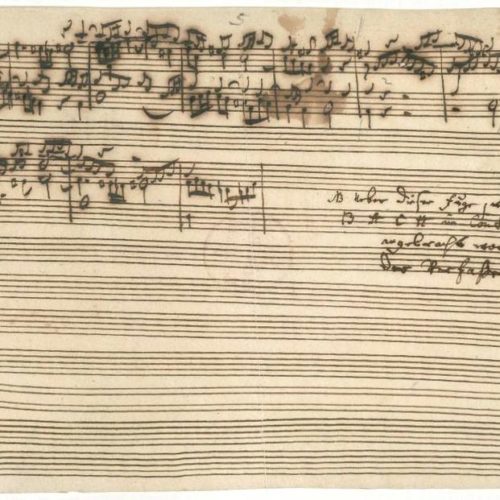 5
NB Ueber dieser Fuge, w
B A C H im Cont
ngebracht wor
der Verfaße